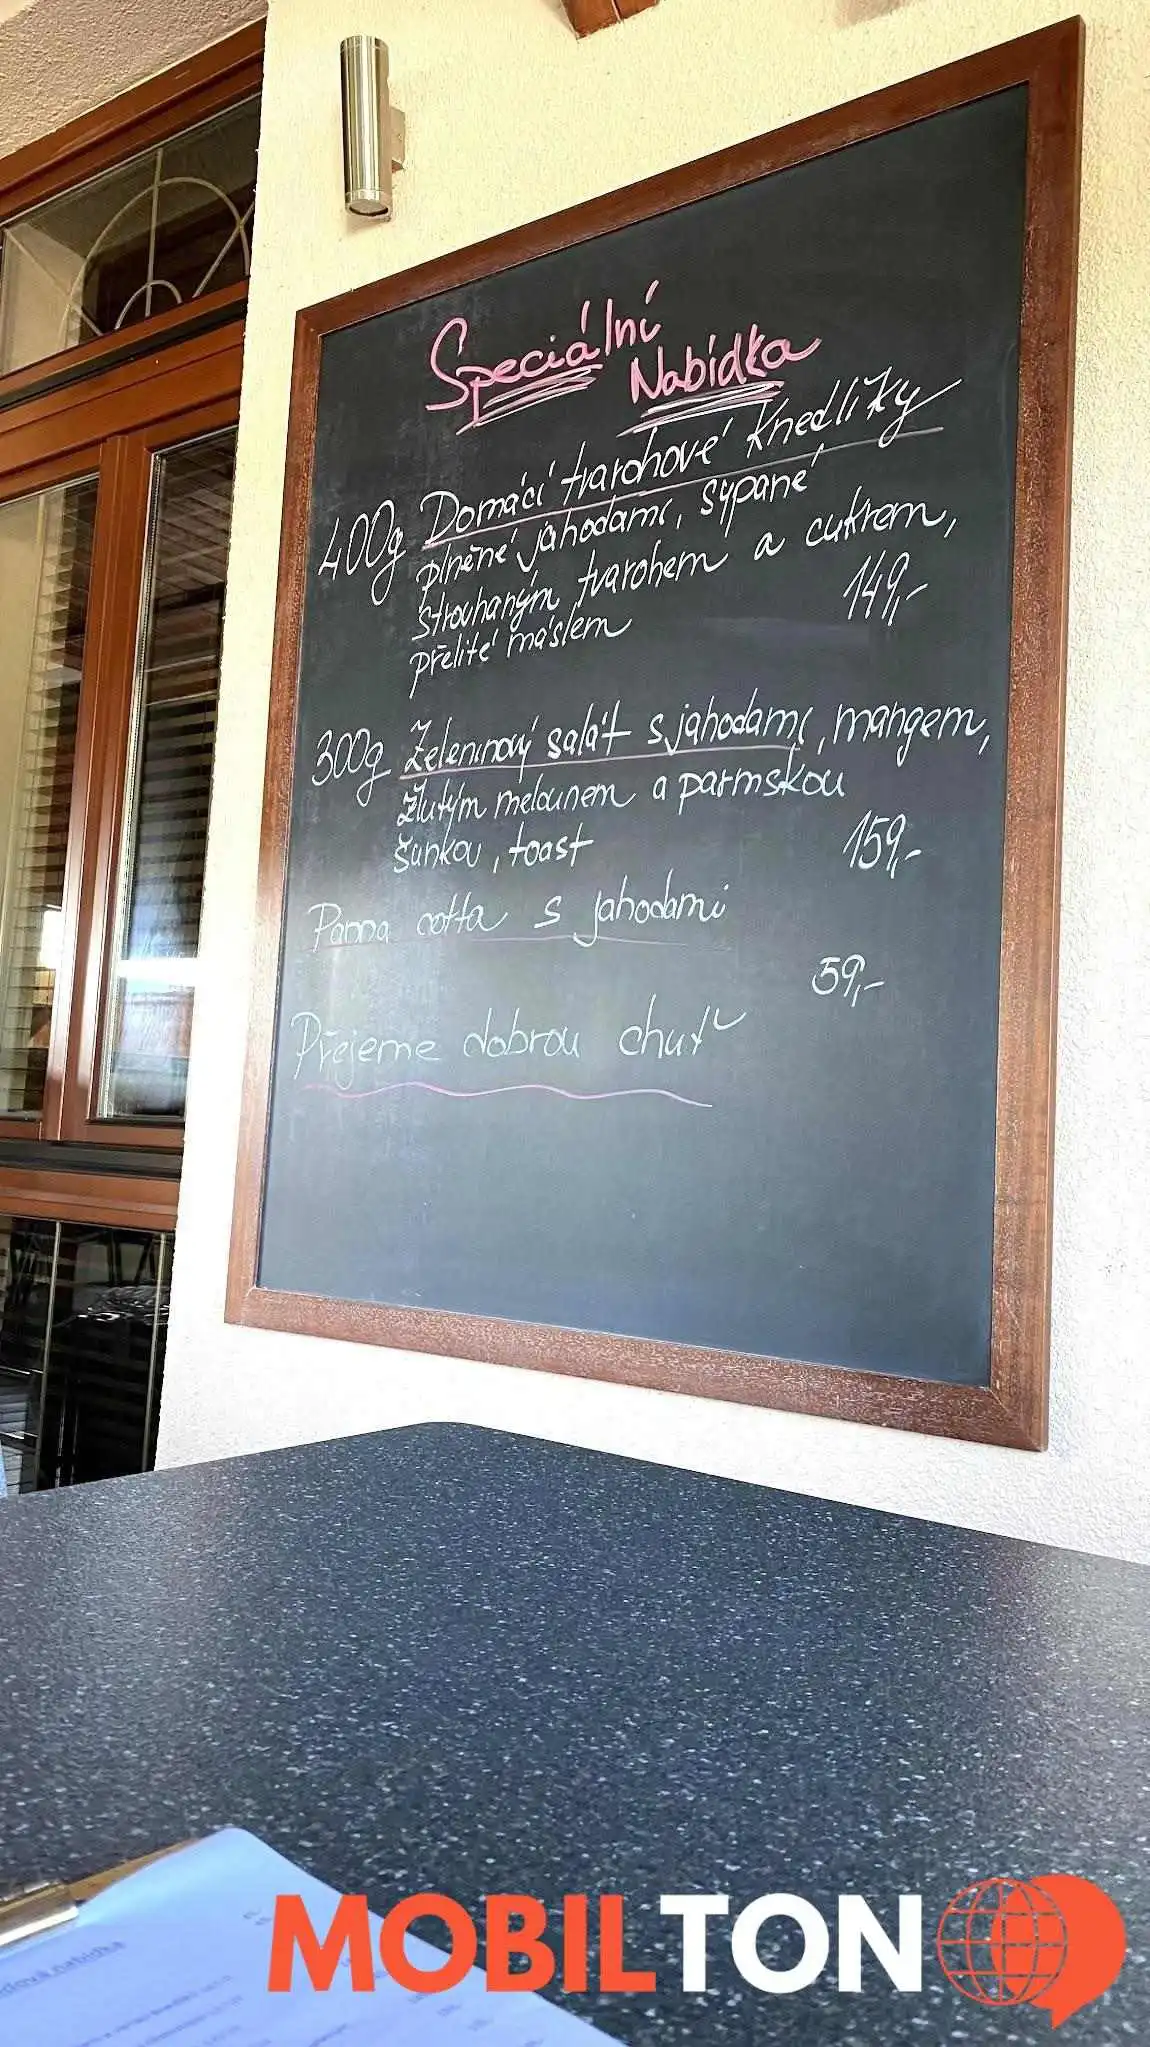 Speciální
Nabídka
400g Domácí tvarohové knedlíky
plněné jahodami, sypané
strouhaným tvarohem a cukrem,
přelité máslem 149,-
300g Zeleninový salát s jahodami, mangem,
žlutým melounem a parmskou
šunkou, toast 159,-
Panna cotta s jahodami
59,-
Přejeme dobrou chuť
nabídka
MOBILTON